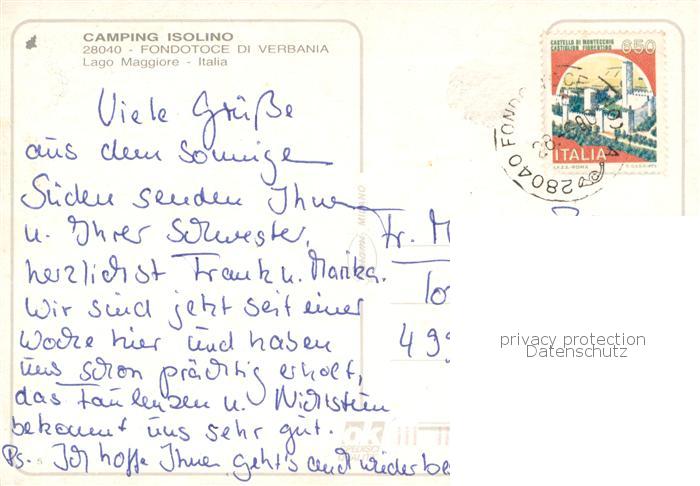 CAMPING ISOLINO
28040 - FONDOTOCE DI VERBANIA
Lago Maggiore - Italia
CASTELLO DI MONTECCHIO
CASTIGLION FIORENTINO
650
ITALIA
I.P.Z.S. - ROMA
28040 FONDO
Viele Grüße
aus dem sonnigen
Süden senden Ihnen
u. Ihrer Schwester,
herzlichst Frank u. Marika.
Wir sind jetzt seit einer
Woche hier und haben
uns schon prächtig erholt,
das Faulenzen u. Nichtstun
bekommt uns sehr gut.
Ps. Ich hoffe Ihnen geht's auch wieder be
Fr. M
499
privacy protection
Datenschutz